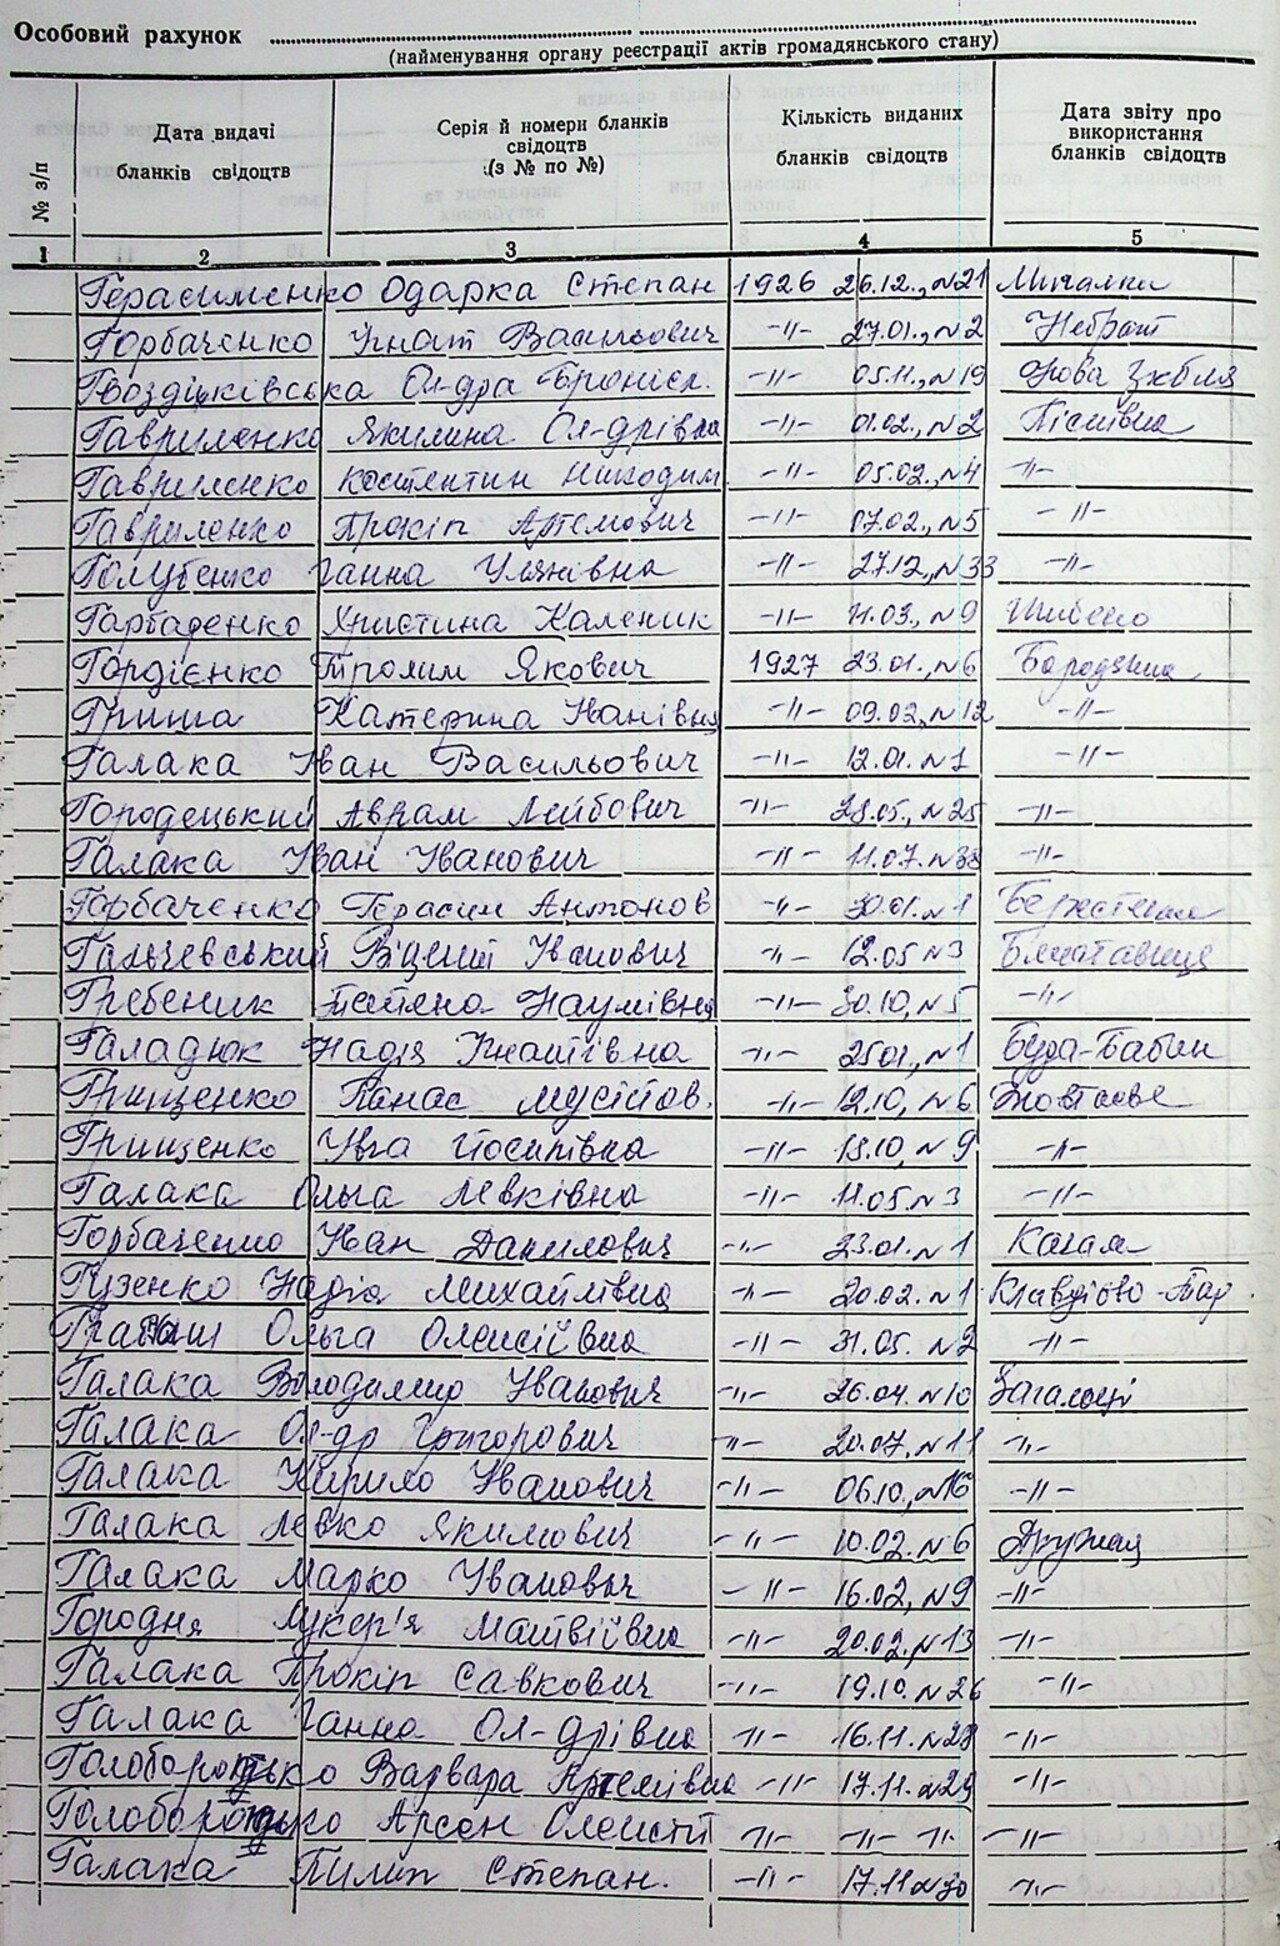 Особовий рахунок
(найменування органу реєстрації актів громадянського стану)
№ з/п
Дата видачі бланків свідоцтв
Серія й номери бланків свідоцтв (з № по №)
Кількість виданих бланків свідоцтв
Дата звіту про використання бланків свідоцтв
1 2 3 4 5
Герасименко Одарка Степан 1926 26.12., N21 Мигалки
Горбаченко Ігнат Васильович -"- 27.01., N2 Небрат
Гвоздіцьківська Ол-дра Бронісл. -"- 05.11., N19
Гавриленко Якилина Ол-дрівна -"- 01.02., N2 Пісківка
Гавриленко Костянтин Никодим -"- 05.02., N4 -"-
Гавриленко Прокіп Артемович -"- 07.02., N5 -"-
Голубенко Ганна Улянівна -"- 27.12., N33 -"-
Гарбаденко Христина Каленик -"- 11.03., N9 Шибено
Гордієнко Трохим Якович 1927 23.01., N6 Бородянка
Гриша Катерина Іванівна -"- 09.02., N12 -"-
Галака Іван Васильович -"- 12.01. N1 -"-
Городецький Аврам Лейбович -"- 28.05., N25 -"-
Галака Іван Іванович -"- 11.07. N38 -"-
Горбаченко Герасим Антонов -"- 30.01. N1 Берестянка
Гальчевський Віцент Іванович -"- 12.05 N3
Гребеник Тетяна Наумівна -"- 30.10, N5 -"-
Галадюк Надія Ігнатівна -"- 25.01., N1 Буда-Бабин
Грищенко Панас Мусійов. -"- 12.10, N6
Грищенко Ївга Йосипівна -"- 18.10, N9 -"-
Галака Ольга Левківна -"- 11.05. N3 -"-
Горбаченко Іван Данилович -"- 23.01. N1
Гузенко Надія Михайлівна -"- 20.02. N1 Клавдієво-Тар.
Ольга Олексіївна -"- 31.05. N2 -"-
Галака Володимир Іванович -"- 26.04. N10 Загальці
Галака Ол-др Григорович -"- 20.07, N11 -"-
Галака Кирило Іванович -"- 06.10., N16 -"-
Галака Левко Якимович -"- 10.02. N6 Дружня
Галака Марко Іванович -"- 16.02, N9 -"-
Городня Лукер'я Матвіївна -"- 20.02., N13 -"-
Галака Прокіп Савкович -"- 19.10. N26 -"-
Галака Ганна Ол-дрівна -"- 16.11. N28 -"-
Голобородько Варвара Артемівна -"- 17.11. N29 -"-
Голобородько Арсен Олексій -"- -"- -"- -"-
Галака Пилип Степан. -"- 17.11 N30 -"-